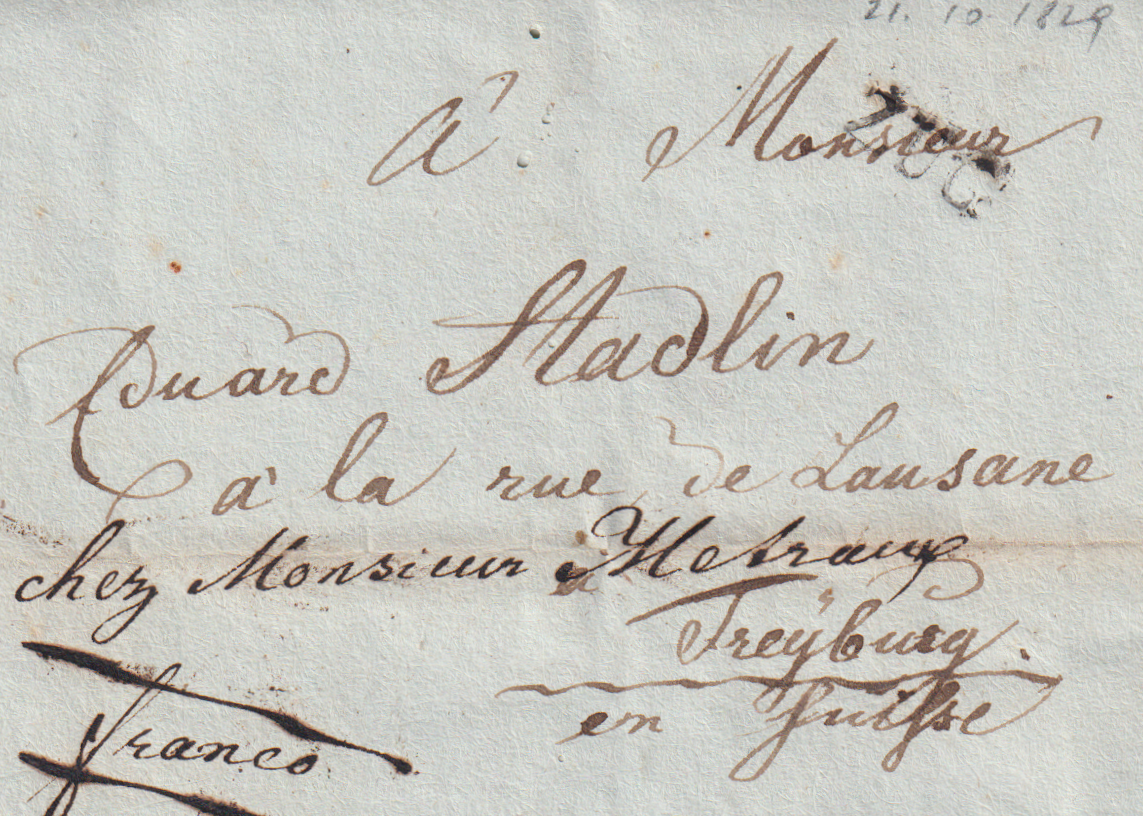 21. 10. 1829
A Monsieur
ZUG
Eduard Stadlin
à la rue de Lausane
chez Monsieur Metraux
à
Freÿburg.
en Suisse
franco